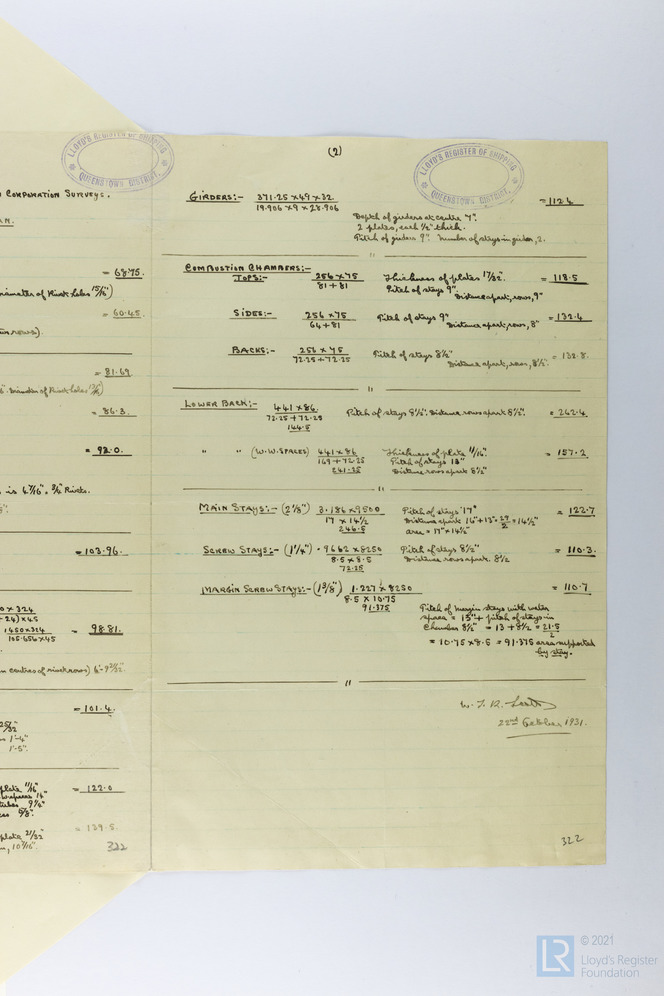 LLOYD'S REGISTER OF SHIPPING
QUEENSTOWN DISTRICT.
CORPORATION SURVEYS.
= 68.75.
diameter of Rivet holes 15/16")
= 60.45.
rows).
= 81.69
diameter of Rivet holes
= 86.3.
= 92.0.
is 6 7/16" × 3/4 Rivets.
= 103.96.
0 × 324
24) × 45
1450 × 314
105.656 × 45
= 98.81.
centres of rivet rows) 6'-9 3/32"
= 101.4.
1'-4"
1'-5".
plate 11/16"
14"
tubes 9 1/4"
5/8".
= 122.0
plate 21/32"
10 7/16".
= 139.5.
322
(2)
LLOYD'S REGISTER OF SHIPPING
QUEENSTOWN DISTRICT.
GIRDERS:- 371.25 × 49 × 32 = 112.4
19.906 × 9 × 28.906
Depth of girders at centre 7".
2 plates, each 1/2" thick.
Pitch of girders 9". Number of stays in girder, 2.
COMBUSTION CHAMBERS:-
TOPS:- 256 × 75 Thickness of plates 17/32". = 118.5
81 + 81 Pitch of stays 9".
Distance apart, rows, 9"
SIDES:- 256 × 75 Pitch of stays 9" = 132.4
64 + 81 Distance apart, rows, 8"
BACKS:- 256 × 75 Pitch of stays 8 1/2" = 132.8.
72.25 + 72.25 Distance apart, rows, 8 1/2".
LOWER BACK:- 441 × 86. Pitch of stays 8 1/2". Distance rows apart 8 1/2". = 262.4
72.25 + 72.25
144.5
" " (W.W. SPACES) 441 × 86 Thickness of plate 11/16". = 157.2
169 + 72.25 Pitch of stays 13"
241.25 Distance rows apart 8 1/2"
MAIN STAYS:- (2 1/8") 3.186 × 9500 Pitch of stays 17" = 122.7
17 × 14 1/2 Distance apart 16" + 13" = 29/2 = 14 1/2"
246.5 area = 17" × 14 1/2"
SCREW STAYS:- (1 1/4") .9662 × 8250 Pitch of stays 8 1/2" = 110.3.
8.5 × 8.5 Distance rows apart. 8 1/2
72.25
MARGIN SCREW STAYS:- (1 3/8") 1.227 × 8250 = 110.7
8.5 × 10.75
91.375
Pitch of margin stays with water
space = 13" + pitch of stays in
Chamber 8 1/2" = 13 + 8 1/2 = 21.5
2
= 10.75 × 8.5 = 91.375 area supported
by stay.
22nd October 1931.
322
LR
© 2021
Lloyd's Register
Foundation